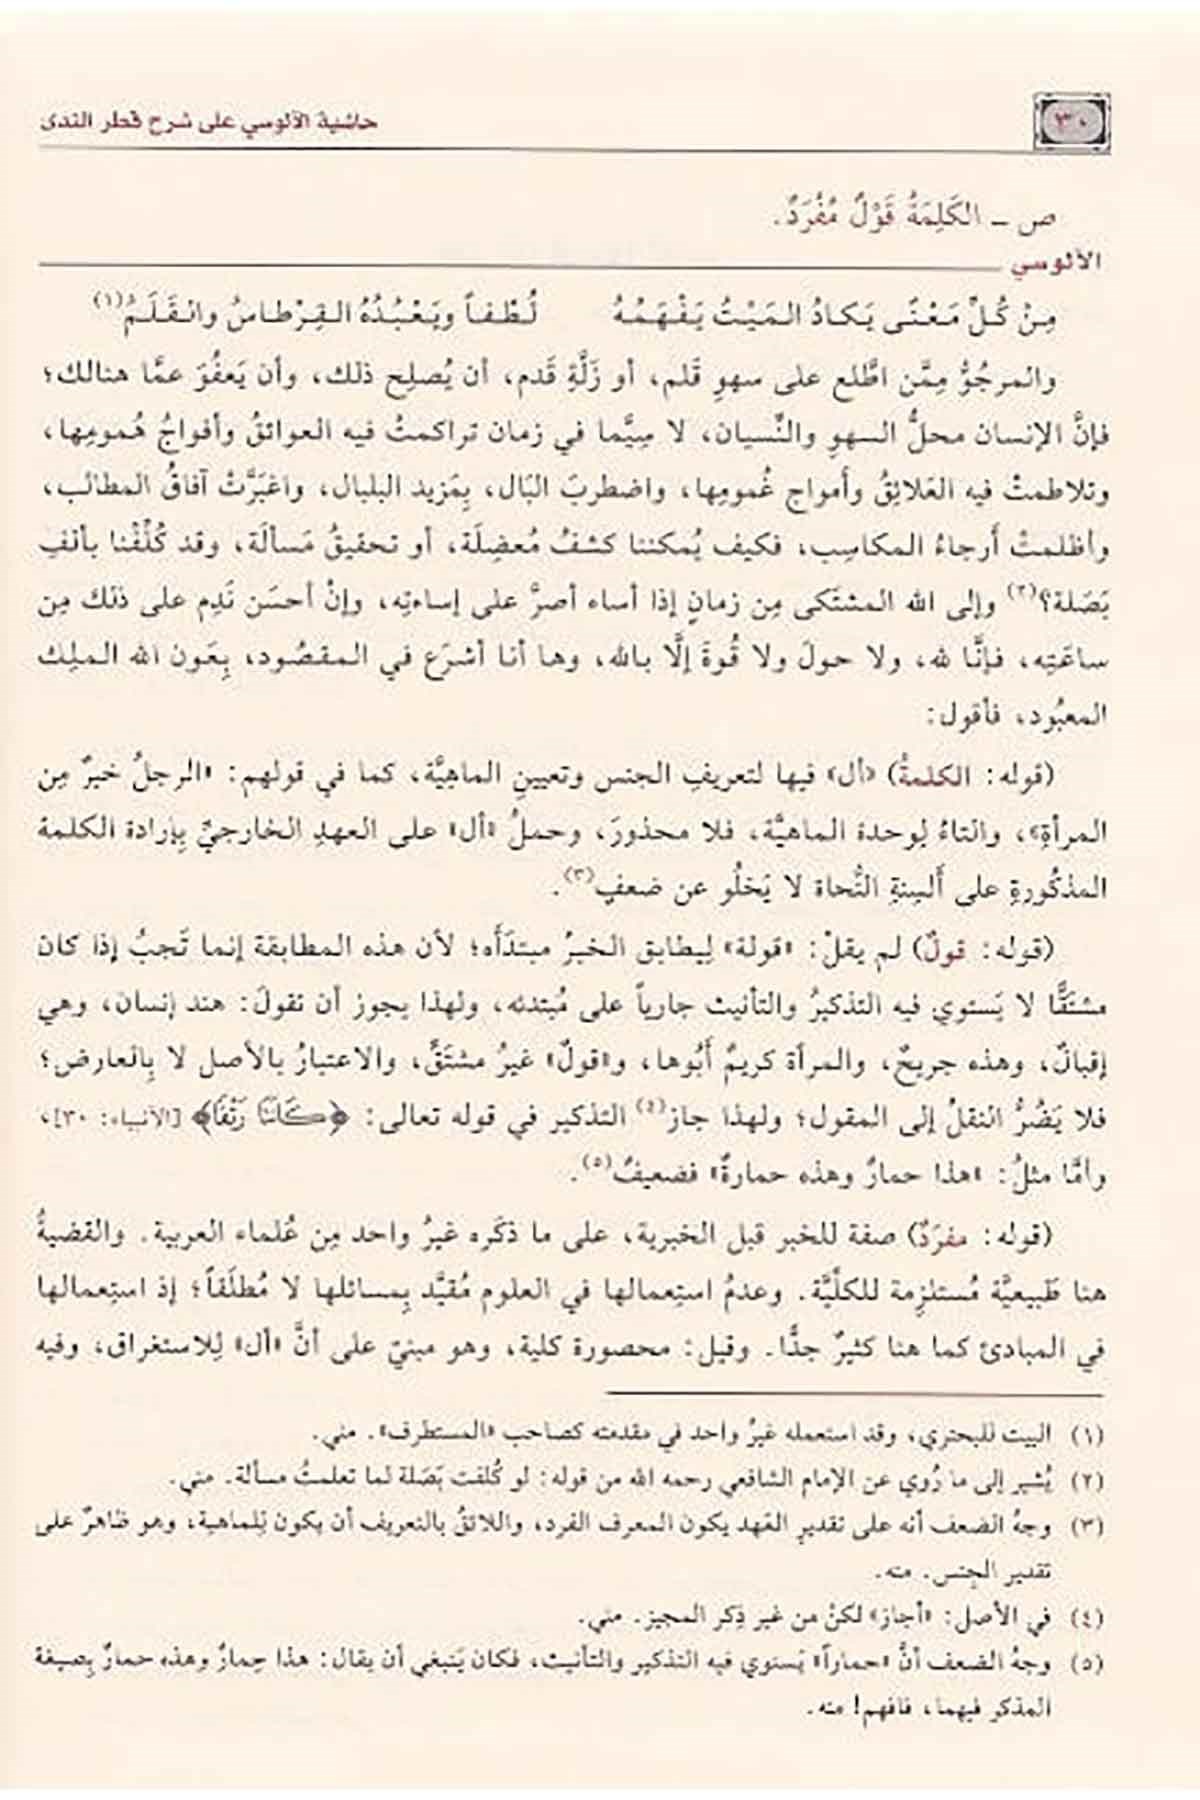 ٣٠
حاشية الآلوسي على شرح قطر الندى
ص ــ الكَلِمَةُ قَوْلٌ مُفْرَدٌ.
الآلوسي
مِنْ كُلِّ مَعْنًى يَكادُ المَيْتُ يَفْهَمُهُ لُطْفاً ويَعْبُدُهُ القِرْطاسُ والقَلَمُ(١)
والمرجُوُّ مِمَّن اطَّلع على سهوِ قَلم، أو زَلَّةِ قَدم، أن يُصلِح ذلك، وأن يَعفُوَ عمَّا هنالك؛
فإنَّ الإنسان محلُّ السهوِ والنِّسيان، لا سِيَّما في زمان تراكمتْ فيه العوائقُ وأفواجُ هُمومِها،
وتلاطمتْ فيه العَلائِقُ وأمواج غُمومِها، واضطربَ البَال، بِمَزيد البلبال، واغبَرَّتْ آفاقُ المطالب،
وأظلمتْ أرجاءُ المكاسِب، فكيف يُمكننا كشفُ مُعضِلَة، أو تحقيقُ مَسألَة، وقد كُلِّفْنا بألفِ
بَصَلة؟(٢) وإلى الله المشتَكى مِن زمانٍ إذا أساء أصرَّ على إساءتِه، وإنْ أحسَن نَدِم على ذلك مِن
ساعَتِه، فإنَّا لله، ولا حولَ ولا قُوةَ إلَّا بالله، وها أنا أشرَع في المقصُود، بِعَون الله الملِك
المعبُود، فأقول:
(قوله: الكلمةُ) «أل» فيها لتعريفِ الجنس وتعيينِ الماهِيَّة، كما في قولهم: «الرجلُ خيرٌ مِن
المرأةِ»، والتاءُ لِوحدة الماهيَّة، فلا محذورَ، وحملُ «أل» على العهدِ الخارجيِّ بِإرادة الكلمة
المذكُورةِ على أَلسِنةِ النُّحاة لا يَخلُو عن ضعفٍ(٣).
(قوله: قولٌ) لم يقلْ: «قولة» لِيطابق الخبرُ مبتدَأَه؛ لأن هذه المطابقة إنما تَجبُ إذا كان
مشتَقًّا لا يَستوي فيه التذكيرُ والتأنيث جارياً على مُبتدئه، ولهذا يجوز أن نقولَ: هند إنسان، وهي
إقبالٌ، وهذه جريحٌ، والمرأة كريمٌ أَبُوها، و«قولٌ» غيرُ مشتَقٍّ، والاعتبارُ بالأصل لا بِالعارض؛
فلا يَضُرُّ النقلُ إلى المقول؛ ولهذا جاز(٤) التذكير في قوله تعالى: ﴿كَانَتَا رَتْقًا﴾ [الأنبياء: ٣٠]،
وأمَّا مثلُ: «هذا حمارٌ وهذه حمارةٌ» فضعيفٌ(٥).
(قوله: مفرَدٌ) صفة للخبر قبل الخبرية، على ما ذكَره غيرُ واحد مِن عُلماء العربية. والقضيةُ
هنا طَبيعيَّة مُستلزِمة للكلِّيَّة. وعدمُ استِعمالها في العلوم مُقيَّد بِمسائلها لا مُطلَقاً؛ إذ استِعمالها
في المبادئ كما هنا كثيرٌ جدًّا. وقيل: محصورة كلية، وهو مبنيّ على أنَّ «أل» لِلاستغراق، وفيه
(١) البيت للبحتري، وقد استعمله غيرُ واحد في مقدمته كصاحب «المستطرف». مني.
(٢) يُشير إلى ما رُوي عن الإمام الشافعي رحمه الله من قوله: لو كُلفت بَصَلة لما تعلمتُ مسألة. مني.
(٣) وجهُ الضعف أنه على تقديرِ العَهد يكون المعرف الفرد، واللائقُ بالتعريف أن يكون لِلماهية، وهو ظاهرٌ على
تقدير الجنس. منه.
(٤) في الأصل: «أجاز» لكنْ من غير ذِكر المجيز. مني.
(٥) وجهُ الضعف أنَّ «حماراً» يَستوي فيه التذكير والتأنيث، فكان يَنبغي أن يقال: هذا حِمارٌ وهذه حمارٌ بِصيغة
المذكر فيهما، فافهم! منه.